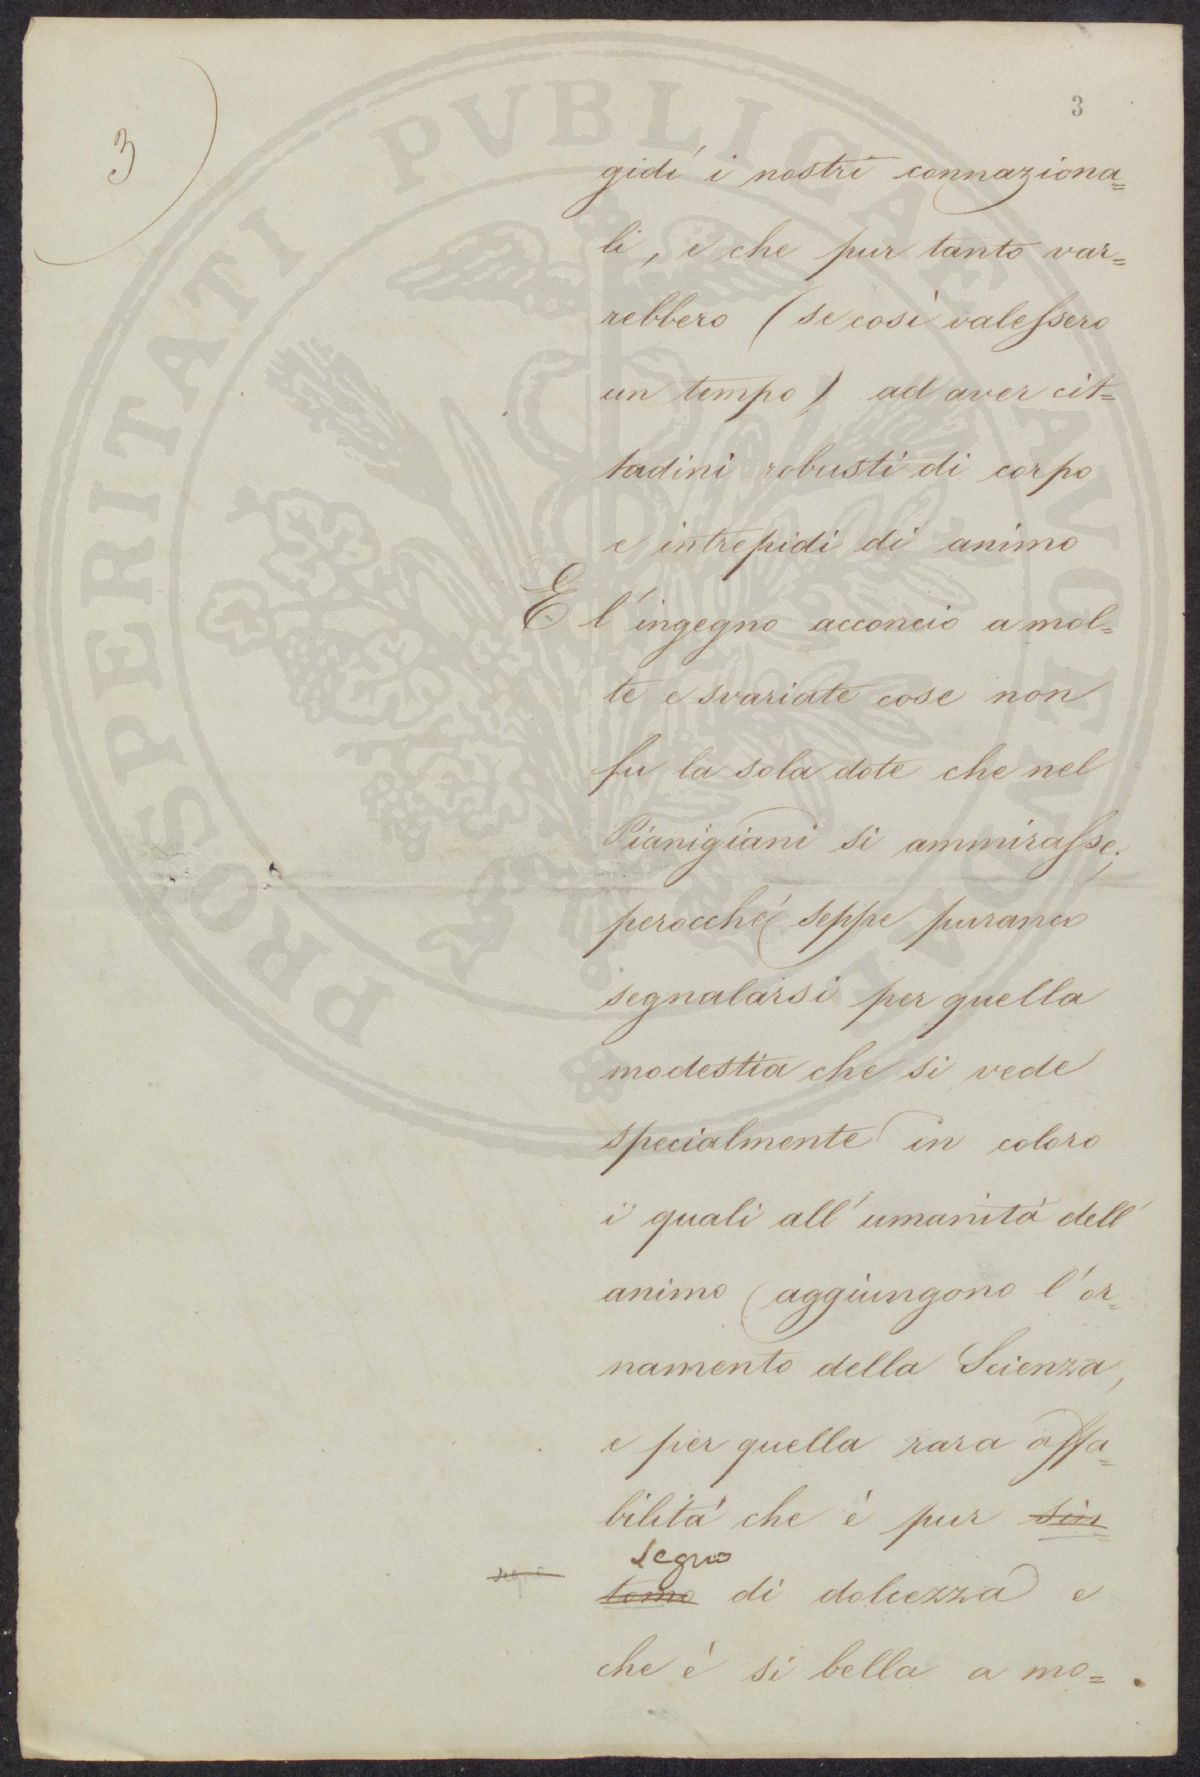 3
3
gidí i nostri connaziona=
li, e che pur tanto var=
rebbero (se così valessero
un tempo) ad aver cit=
tadini robusti di corpo
e intrepidi di animo
E l'ingegno acconcio a mol=
te e svariate cose non
fu la sola dote che nel
Pianigiani si ammirasse;
perocché seppe puranco
segnalarsi per quella
modestia che si vede
specialmente in coloro
i quali all'umanità dell'
animo aggiungono l'or=
namento della Scienza,
e per quella rara affa=
bilità che è pur sin=
segno
segno
tomo di dolcezza e
che è si bella a mo=
PROSPERITATI PVBLICAE AVGENDAE